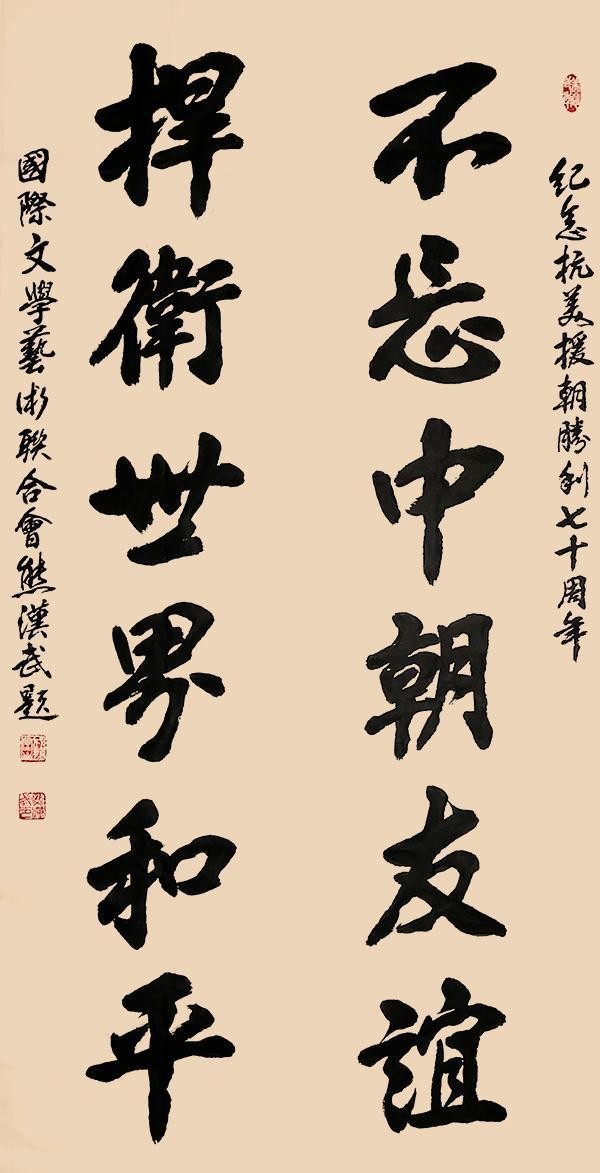 紀念抗美援朝勝利七十周年
不忘中朝友誼
捍衛世界和平
國際文學藝術聯合會熊漢武題